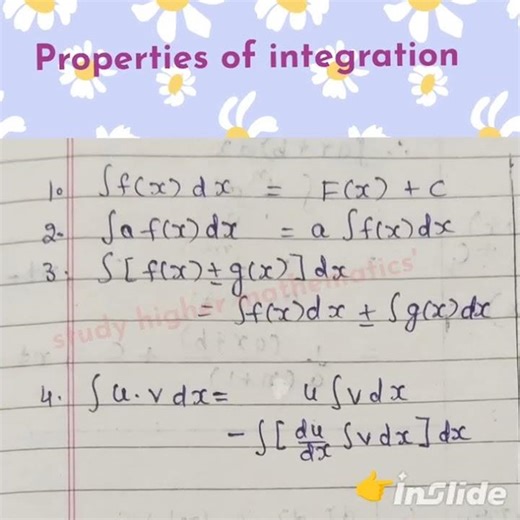 Properties of integration
1. ∫f(x) dx = F(x) + C
2. ∫a f(x) dx = a ∫f(x) dx
3. ∫[f(x) ± g(x)] dx
= ∫f(x) dx ± ∫g(x) dx
study higher mathematics'
4. ∫u.v dx = u ∫v dx
- ∫[du/dx ∫v dx] dx
inSlide